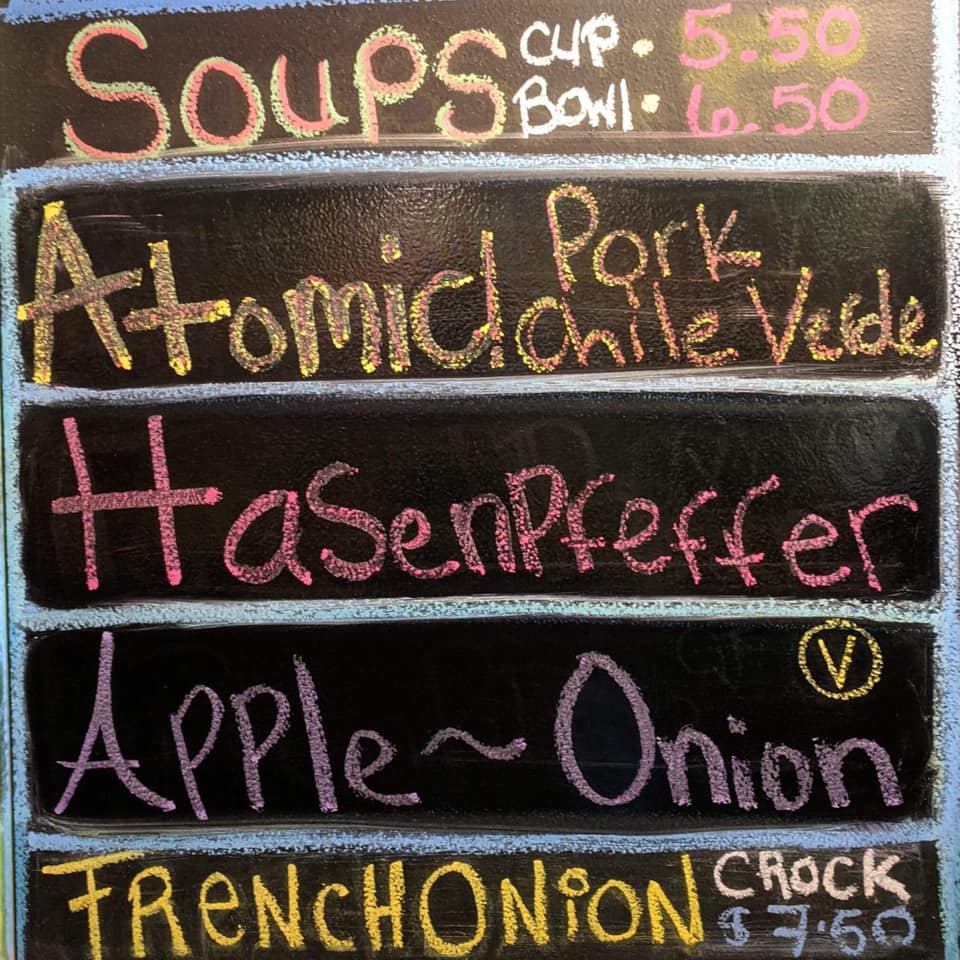 Soups CUP. 5.50
BOWl. 6.50
Atomic! Pork
chile Verde
Hasenpfeffer
Apple~Onion V
FRENCH ONiON CROCK
$7.50